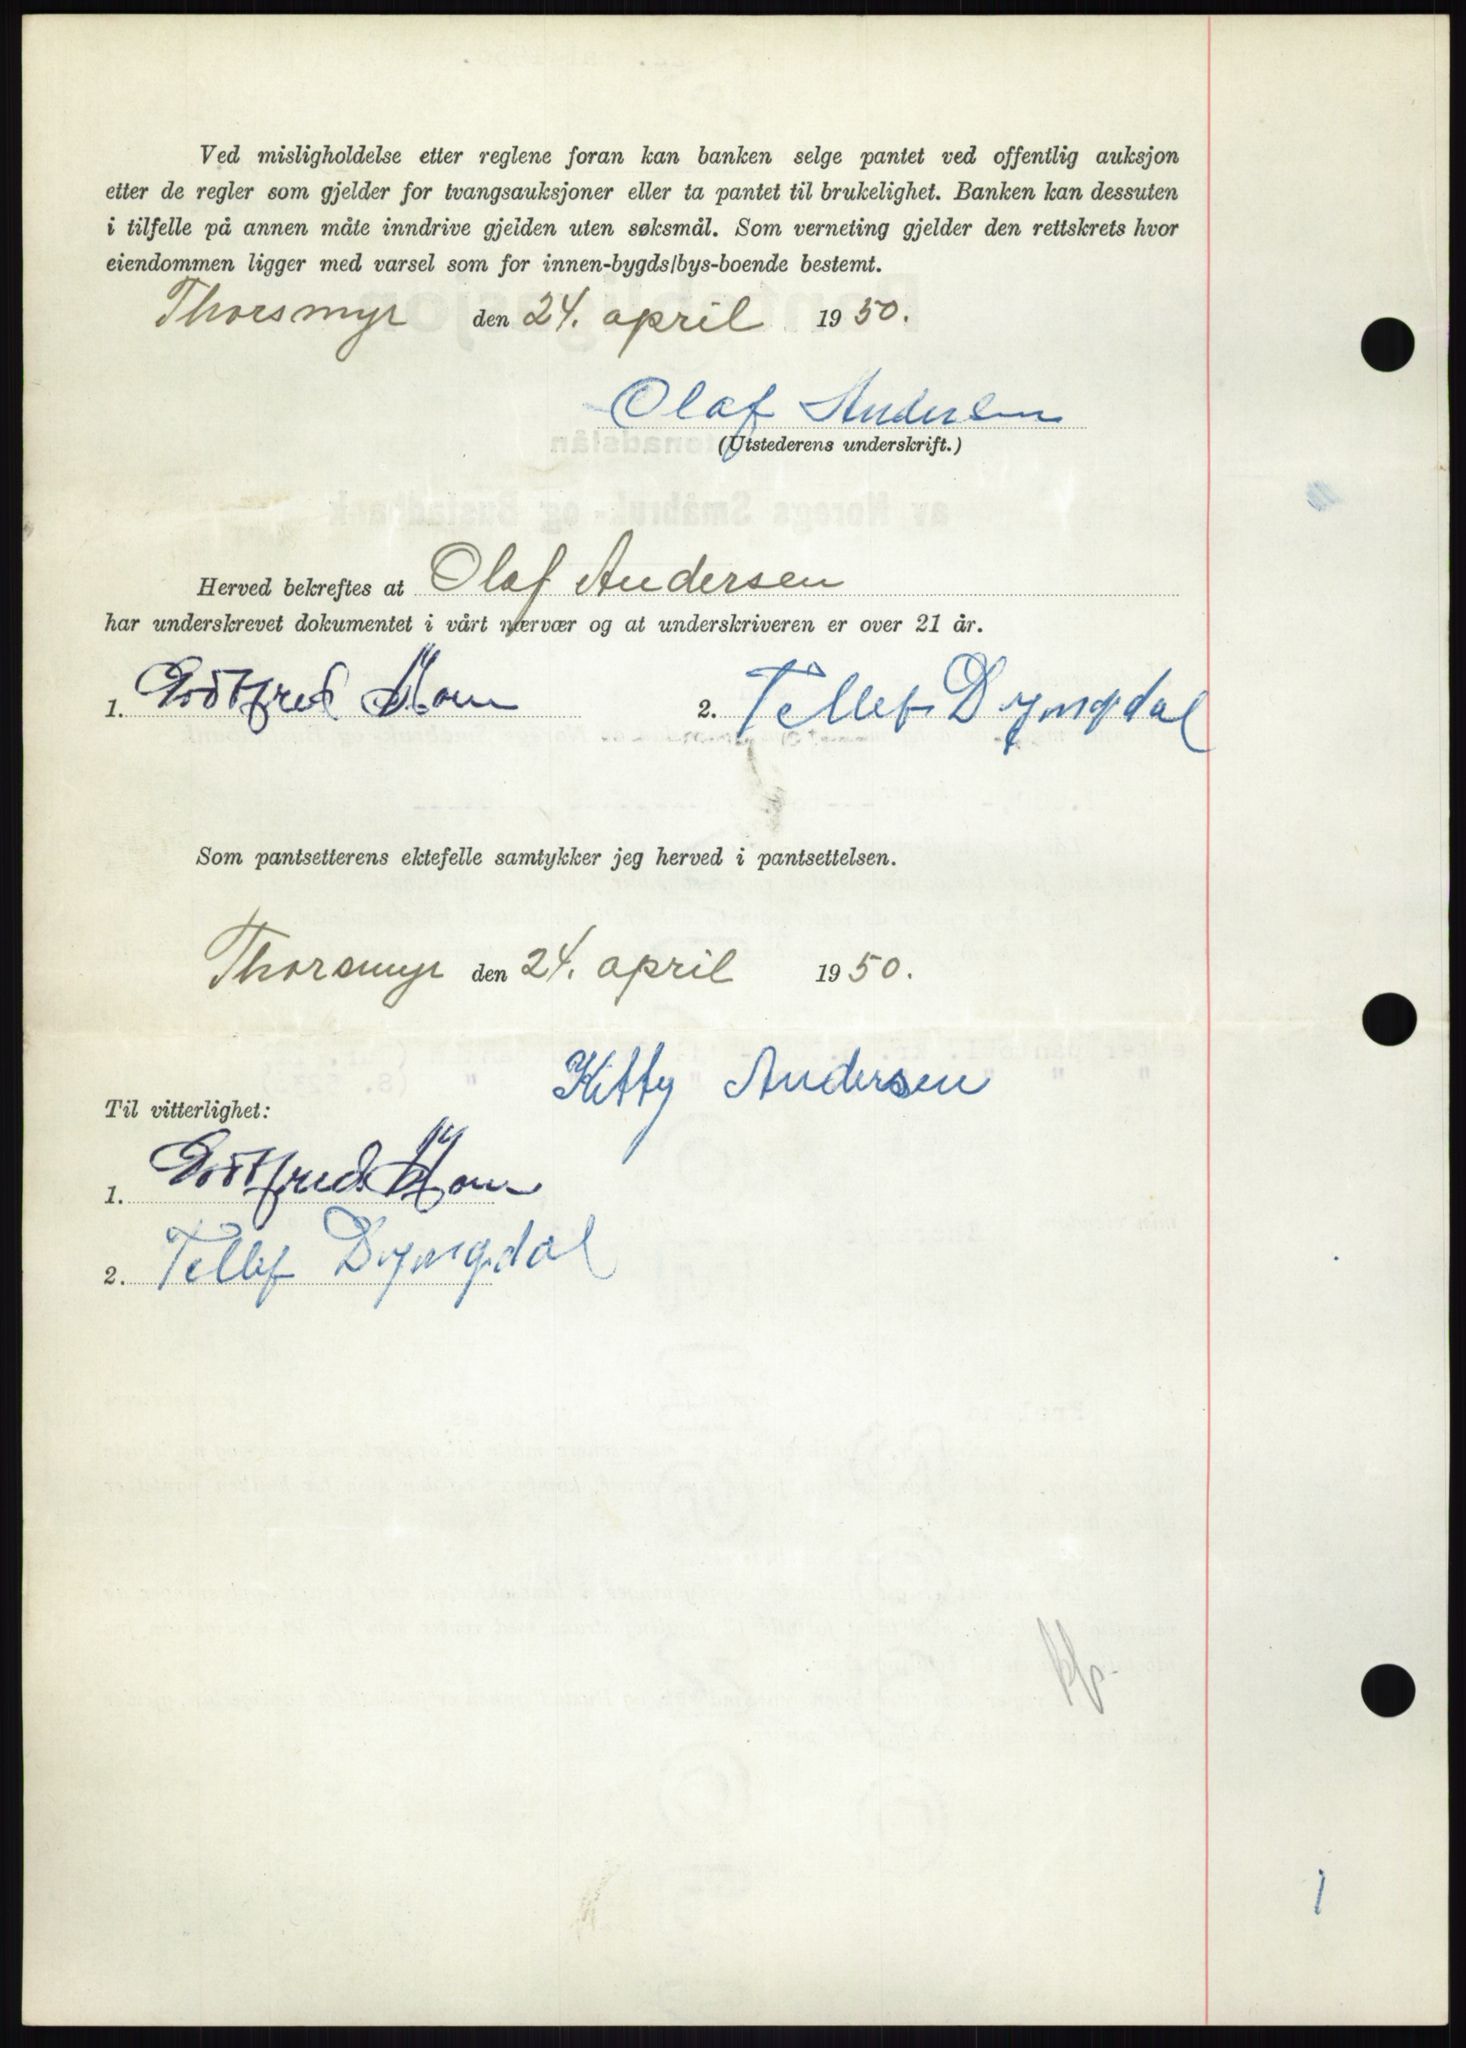 Ved misligholdelse etter reglene foran kan banken selge pantet ved offentlig auksjon
etter de regler som gjelder for tvangsauksjoner eller ta pantet til brukelighet. Banken kan dessuten
i tilfelle på annen måte inndrive gjelden uten søksmål. Som verneting gjelder den rettskrets hvor
eiendommen ligger med varsel som for innen-bygds/bys-boende bestemt.
Thorsmyr den 24. april 1950.
Olaf Andersen
(Utstederens underskrift.)
Herved bekreftes at Olaf Andersen
har underskrevet dokumentet i vårt nærvær og at underskriveren er over 21 år.
1. Gottfred 2. Tellef Dyngdal
Som pantsetterens ektefelle samtykker jeg herved i pantsettelsen.
Thorsmyr den 24. april 1950.
Kitty Andersen
Til vitterlighet:
1. Gottfred
2. Tellef Dyngdal
1